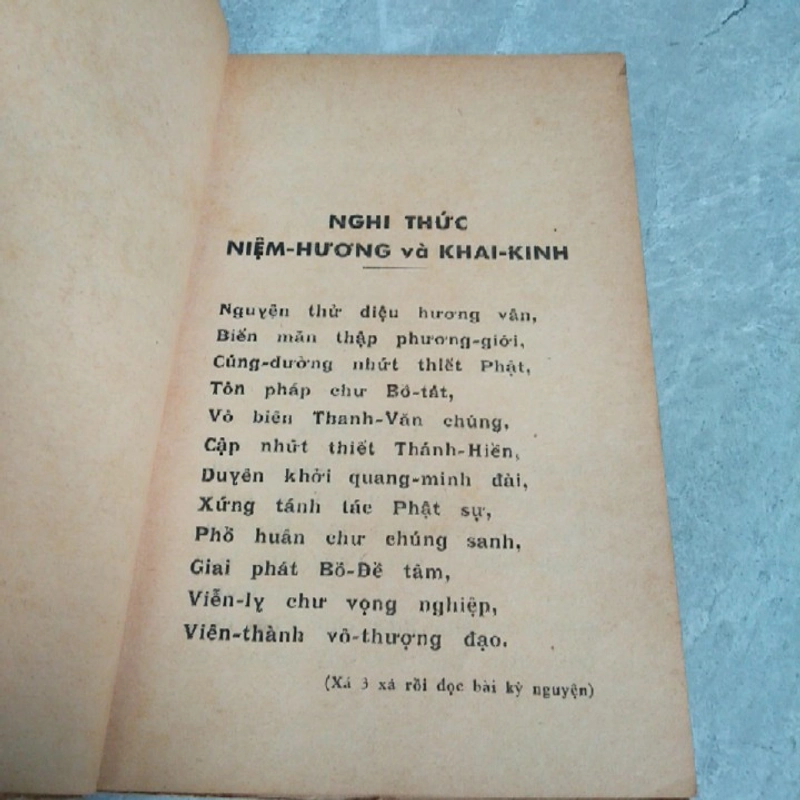 NGHI THỨC
NIỆM-HƯƠNG và KHAI-KINH
Nguyện thử diệu hương vân,
Biến mãn thập phương-giới,
Cúng-dường nhứt thiết Phật,
Tôn pháp chư Bồ-tát,
Vô biên Thanh-Văn chúng,
Cập nhứt thiết Thánh-Hiền,
Duyên khởi quang-minh đài,
Xứng tánh tác Phật sự,
Phổ huân chư chúng sanh,
Giai phát Bồ-Đề tâm,
Viễn-ly chư vọng nghiệp,
Viên-thành vô-thượng đạo.
(Xá 3 xá rồi đọc bài kỳ nguyện)